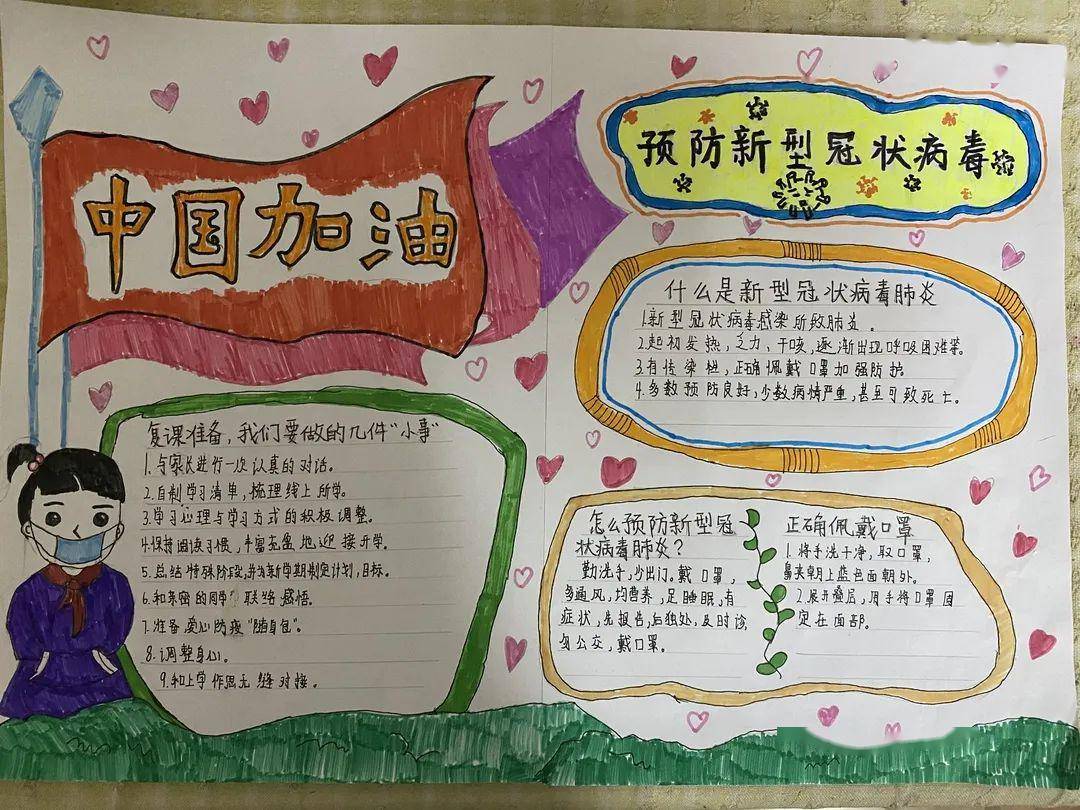 中国加油
预防新型冠状病毒
什么是新型冠状病毒肺炎
1.新型冠状病毒感染所致肺炎。
2.起初发热,乏力,干咳,逐渐出现呼吸困难等。
3.有传染性,正确佩戴口罩加强防护
4.多数预防良好,少数病情严重,甚至可致死亡。
复课准备,我们要做的几件“小事”
1.与家长进行一次认真的对话。
2.自制学习清单,梳理线上所学。
3.学习心理与学习方式的积极调整。
4.保持阅读习惯,丰富充盈地迎接开学。
5.总结特殊阶段,并为新学期制定计划,目标。
6.和亲密的同学联络感悟。
7.准备爱心防疫“随身包”。
8.调整身心。
9.和上学作息无缝对接。
怎么预防新型冠
状病毒肺炎?
勤洗手,少出门。戴口罩,
多通风,均营养,足睡眠,有
症状,先报告,后独处,及时诊,
勿公交,戴口罩。
正确佩戴口罩
1.将手洗干净,取口罩,
鼻夹朝上蓝色面朝外。
2.展开叠层,用手将口罩固
定在面部。